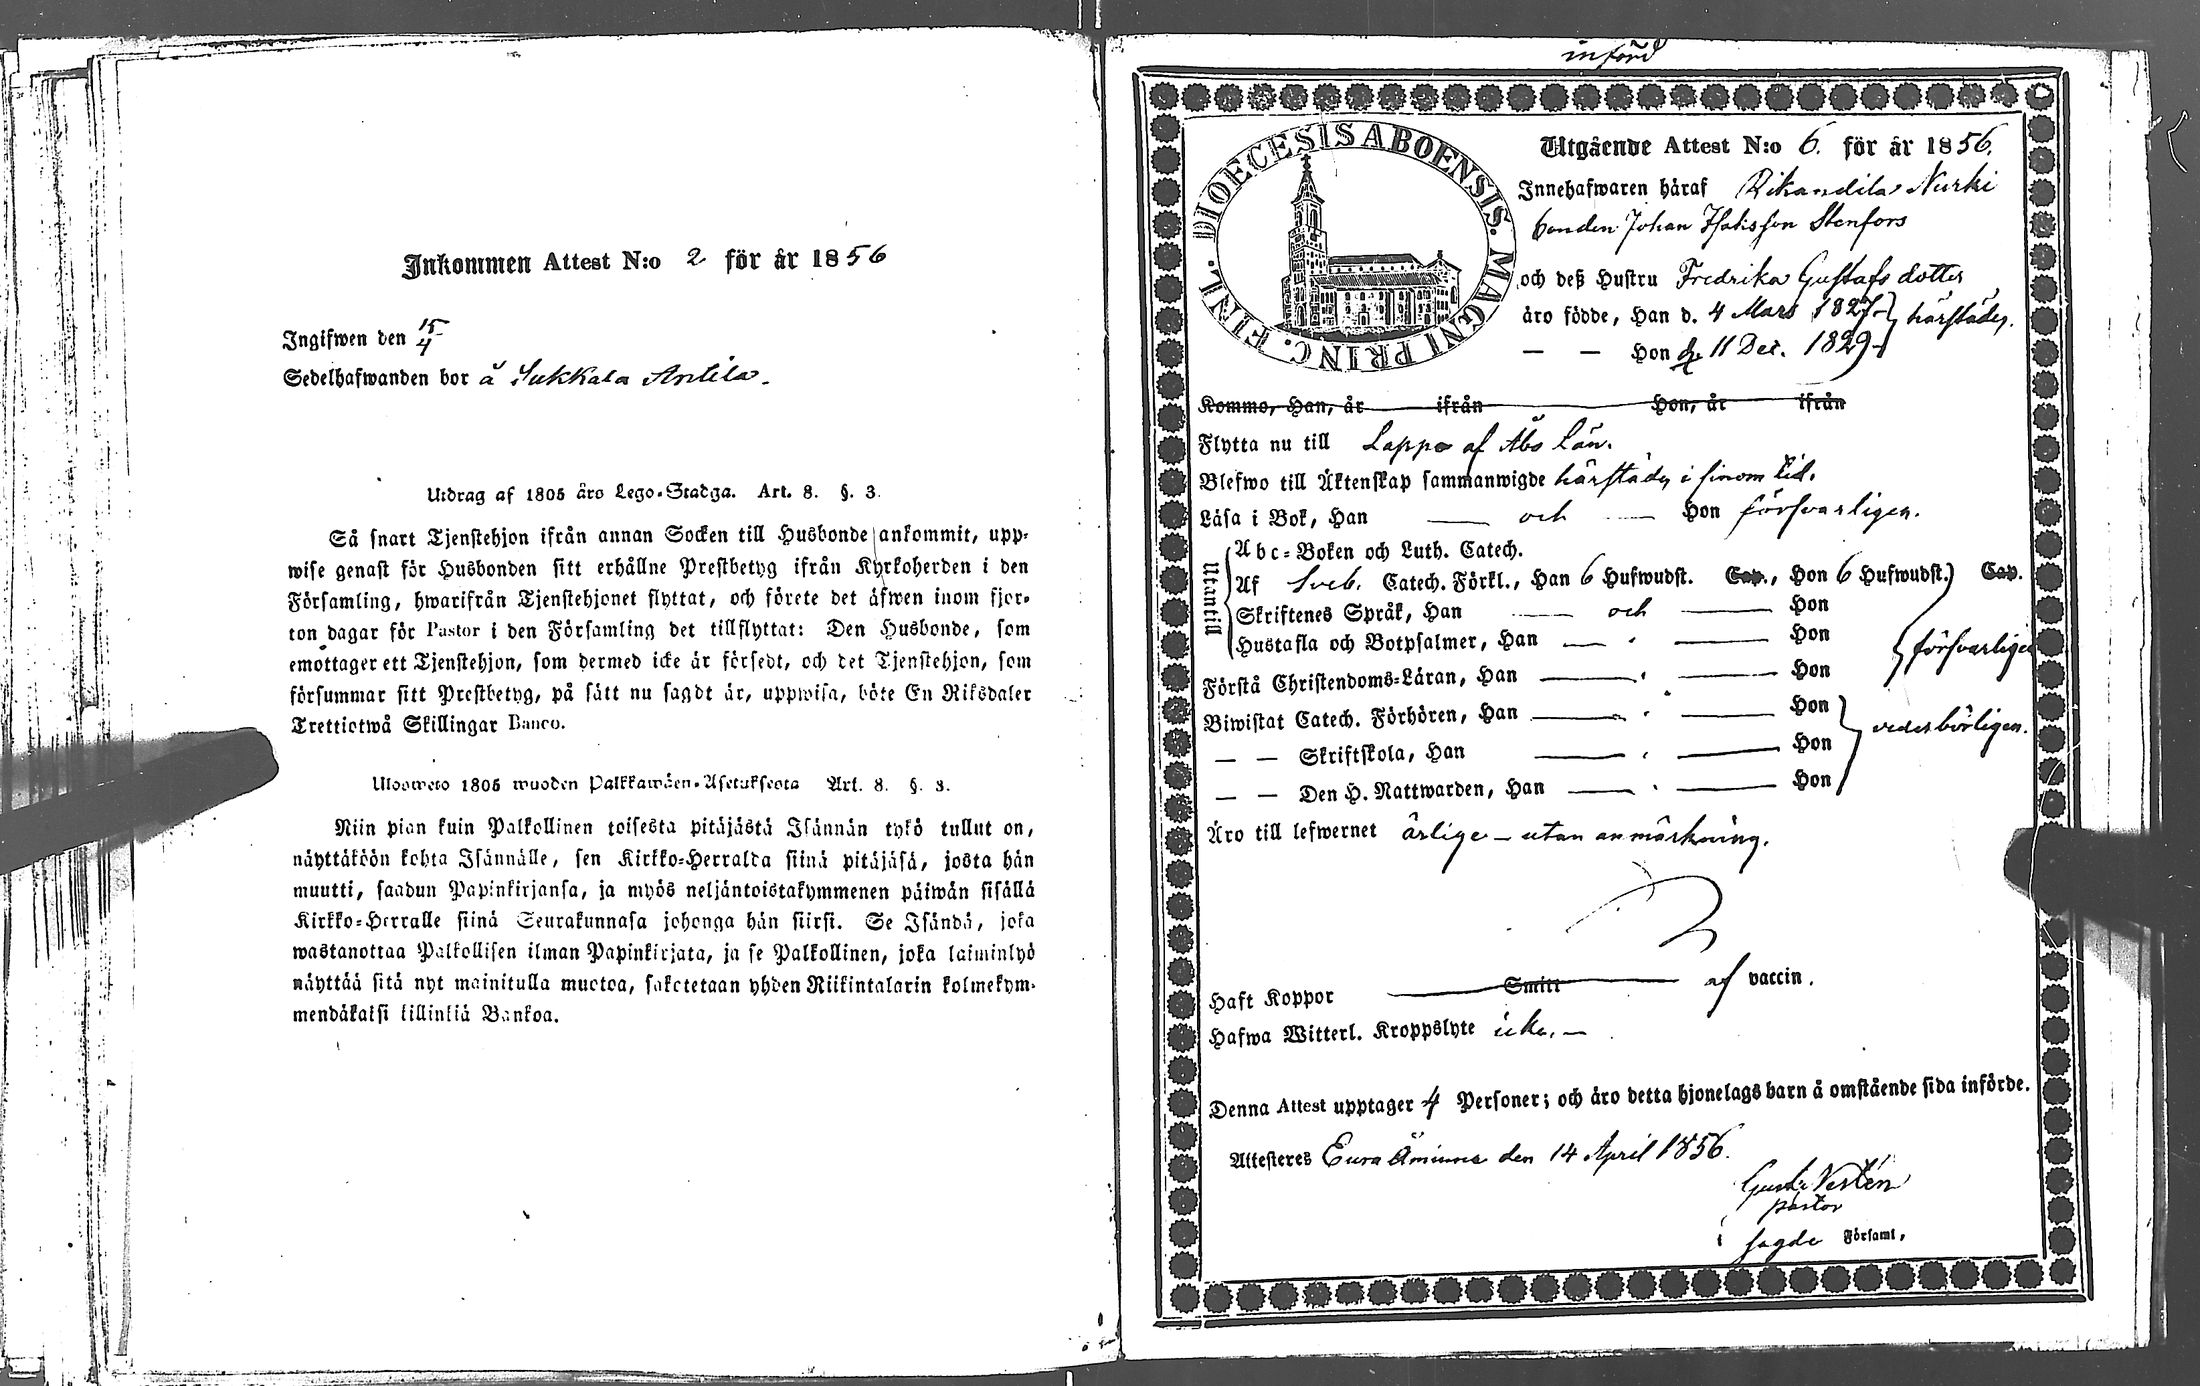 Inkommen Attest N:o 2 för år 1856
Ingifwen den 15/4
Sedelhafwanden bor å Sukkala Antila.
Utdrag af 1805 års Lego-Stadga. Art. 8. §. 3.
Så snart Tjenstehjon ifrån annan Socken till Husbonde ankommit, upp-
wise genast för Husbonden sitt erhållne Prestbetyg ifrån Kyrkoherden i den
Församling, hwarifrån Tjenstehjonet flyttat, och förete det äfwen inom fjor-
ton dagar för Pastor i den Församling det tillflyttat: Den Husbonde, som
emottager ett Tjenstehjon, som dermed icke är försedt, och det Tjenstehjon, som
försummar sitt Prestbetyg, på sätt nu sagdt är, uppwisa, böte En Riksdaler
Trettiotwå Skillingar Banco.
Ulosweto 1805 wuoden Palkkawäen-Asetuksesta Art. 8. §. 3.
Niin pian kuin Palkollinen toisesta pitäjästä Isännän tykö tullut on,
näyttäköön kohta Isännälle, sen Kirkko-Herralda siinä pitäjäsä, josta hän
muutti, saadun Papinkirjansa, ja myös neljäntoistakymmenen päiwän sisällä
Kirkko-Herralle siinä Seurakunnasa johonga hän siirsi. Se Isändä, joka
wastanottaa Palkollisen ilman Papinkirjata, ja se Palkollinen, joka laiminlyö
näyttää sitä nyt mainitulla muotoa, sakotetaan yhden Riikintalarin kolmekym-
mendäkaksi killinkiä Bankoa.
införd
DIOECESIS ABOENSIS. MAGNI PRINC. FINL.
Utgående Attest N:o 6. för år 1856.
Innehafwaren häraf Nurki
bonden Johan Isaksson Stenfors
och deß Hustru Fredrika Gustafsdotter
äro födde, Han d. 4 Mars 1827 härstädes.
— — Hon d. 11 Dec. 1829
Kommo, Han, år ifrån Hon, år ifrån
Flytta nu till Lappo af Åbo Län.
Blefwo till Äktenskap sammanwigde härstädes i sinom tid.
Läsa i Bok, Han — och — Hon försvarligen.
Utantill
Abc-Boken och Luth. Catech.
Af Sveb. Catech. Förkl., Han 6 Hufwudst. Cap., Hon 6 Hufwudst. Cap.
Skriftenes Språk, Han — och — Hon
Hustafla och Botpsalmer, Han — " — Hon försvarligen
Förstå Christendoms-Läran, Han — " — Hon
Biwistat Catech. Förhören, Han — " — Hon vederbörligen.
— — Skriftskola, Han — " — Hon
— — Den H. Nattwarden, Han — " — Hon
Äro till lefwernet ärlige — utan anmärkning.
Haft Koppor Smitt af vaccin.
Hafwa Witterl. Kroppslyte icke. —
Denna Attest upptager 4 Personer; och äro detta hjonelags barn å omstående sida införde.
Attesteres Eura Åminne den 14 April 1856.
Gust. Vestén
pastor
i sagde Församl.